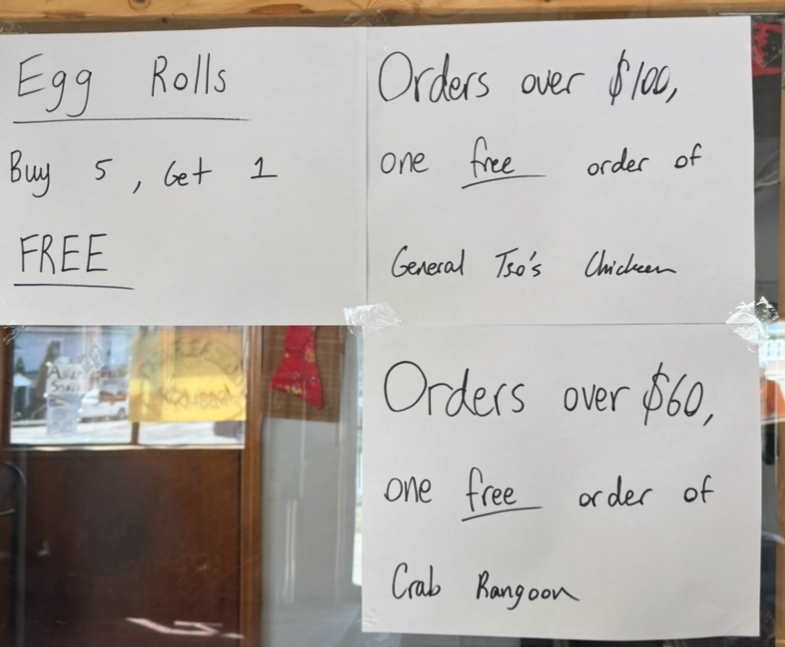 Egg Rolls
Buy 5, Get 1
FREE
Orders over $100,
one free order of
General Tso's Chicken
Orders over $60,
one free order of
Crab Rangoon
Asian